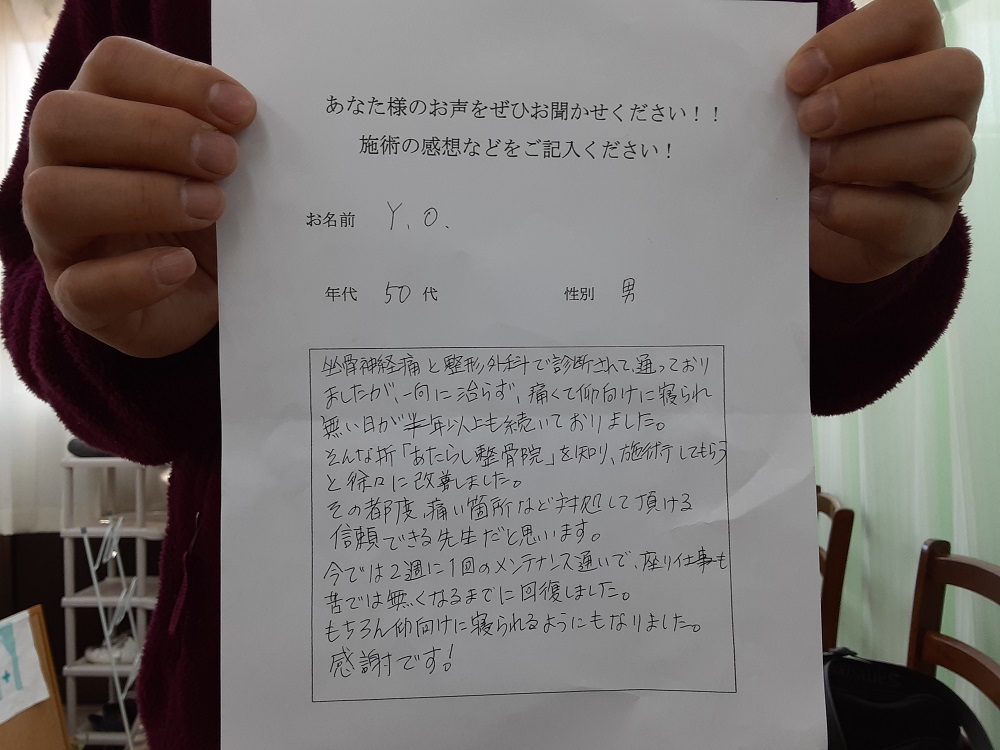 あなた様のお声をぜひお聞かせください！！
施術の感想などをご記入ください！
お名前 Y.O.
年代 50 代 性別 男
坐骨神経痛と整形外科で診断されて、通っており
ましたが、一向に治らず、痛くて仰向けに寝られ
無い日が半年以上も続いておりました。
そんな折「あたらし整骨院」を知り、施術してもらう
と徐々に改善しました。
その都度、痛い箇所など対処して頂ける
信頼できる先生だと思います。
今では2週に1回のメンテナンス通いで、座り仕事も
苦では無くなるまでに回復しました。
もちろん仰向けに寝られるようにもなりました。
感謝です！